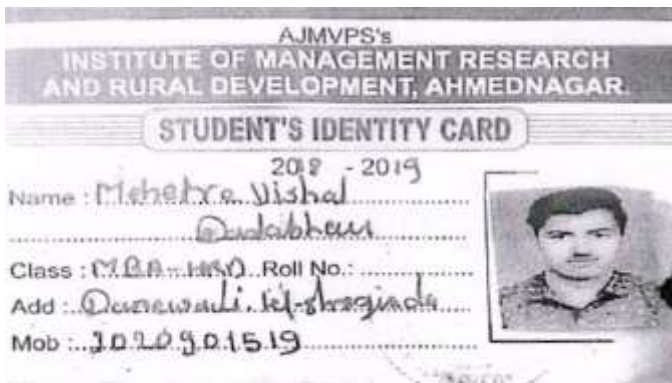 AJMVPS's
INSTITUTE OF MANAGEMENT RESEARCH
AND RURAL DEVELOPMENT, AHMEDNAGAR.
STUDENT'S IDENTITY CARD
2018 - 2019
Name : Mehetre Vishal
Dadabhau
Class : MBA-HRD Roll No.:
Add :
Mob :